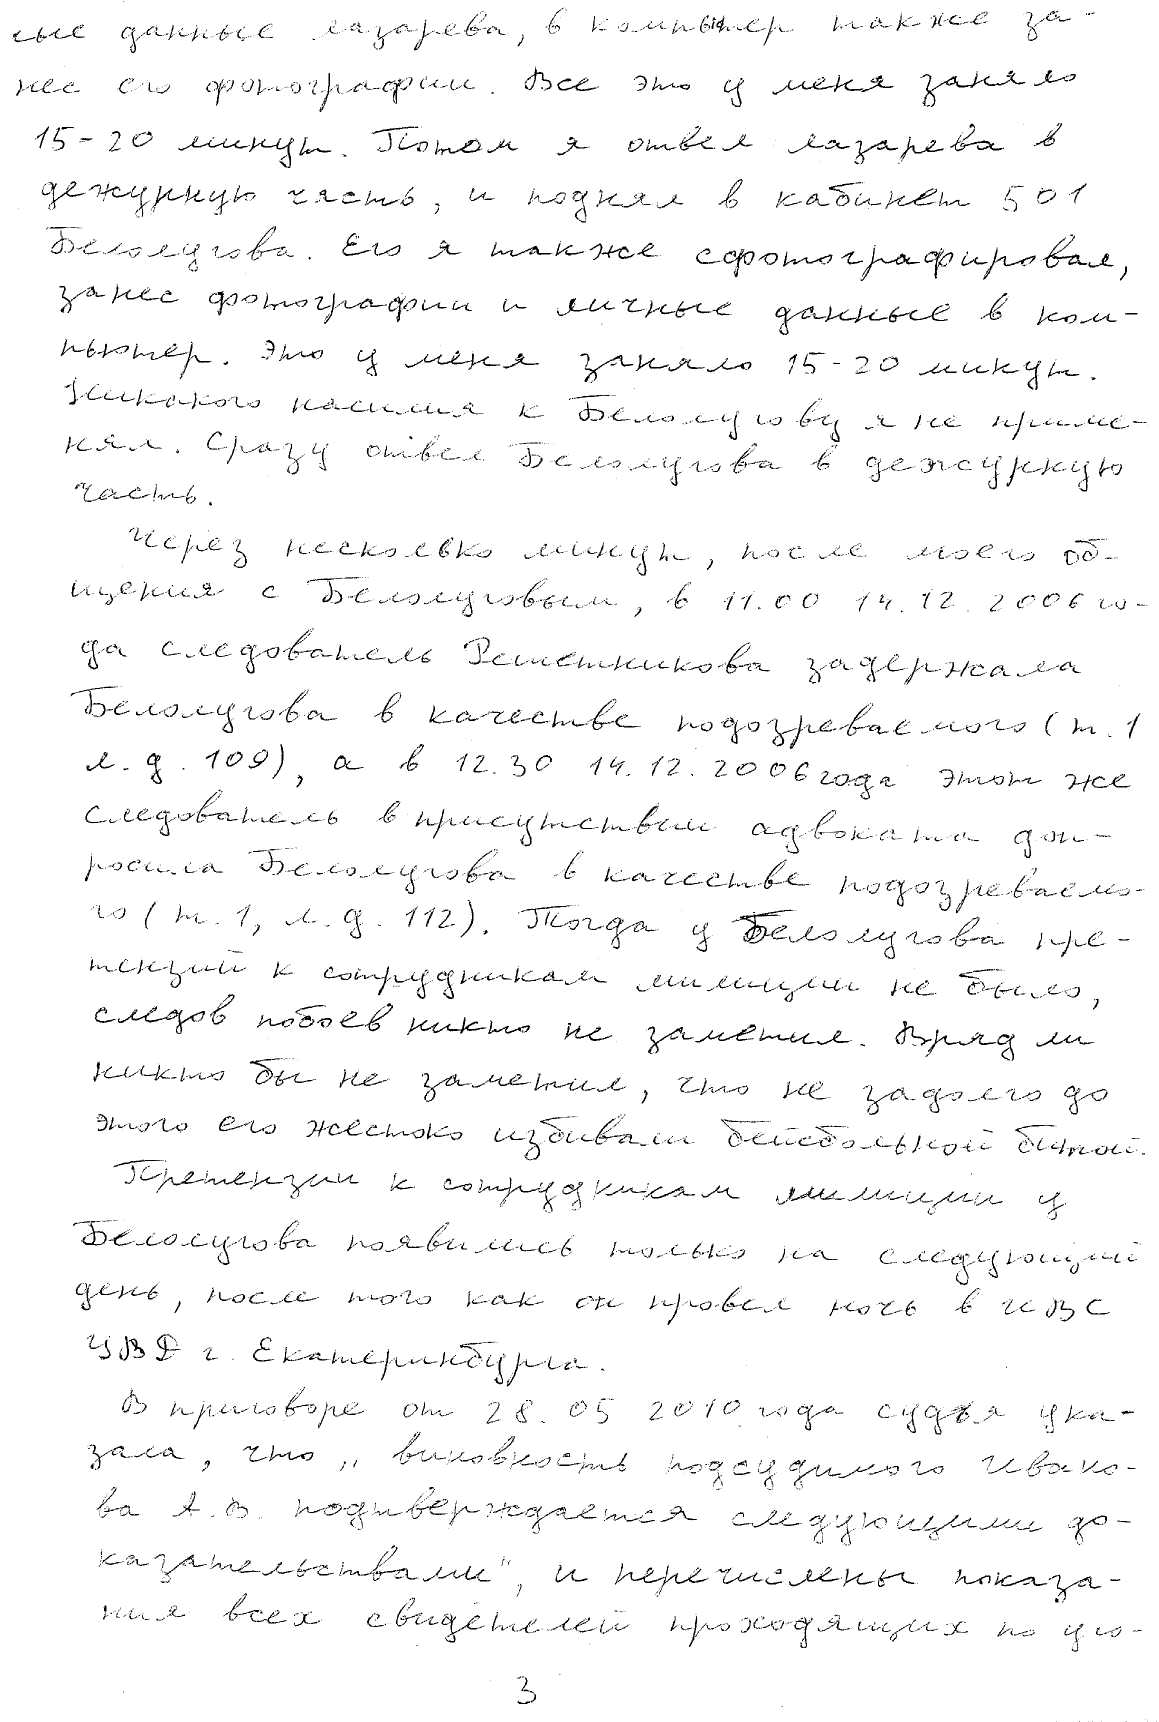 ные данные Лазарева, в компьютер также за-
нес его фотографии. Все это у меня заняло
15-20 минут. Потом я отвел Лазарева в
дежурную часть, и поднял в кабинет 501
Белоусова. Его я также сфотографировал,
занес фотографии и личные данные в ком-
пьютер. Это у меня заняло 15-20 минут.
Никакого насилия к Белоусову я не приме-
нял. Сразу отвел Белоусова в дежурную
часть.
Через несколько минут, после моего об-
щения с Белоусовым, в 11.00 14.12.2006 го-
да следователь Решетникова задержала
Белоусова в качестве подозреваемого (т. 1
л. д. 109), а в 12.30 14.12.2006 года этот же
следователь в присутствии адвоката доп-
росила Белоусова в качестве подозреваемо-
го (т. 1, л. д. 112). Тогда у Белоусова пре-
тензий к сотрудникам милиции не было,
следов побоев никто не заметил. Вряд ли
никто бы не заметил, что не задолго до
этого его жестоко избивали бейсбольной битой.
Претензии к сотрудникам милиции у
Белоусова появились только на следующий
день, после того как он провел ночь в ИВС
УВД г. Екатеринбурга.
В приговоре от 28.05 2010 года судья ука-
зала, что „виновность подсудимого Ивано-
ва А.В. подтверждается следующими до-
казательствами", и перечислены показа-
ния всех свидетелей проходящих по уго-
3